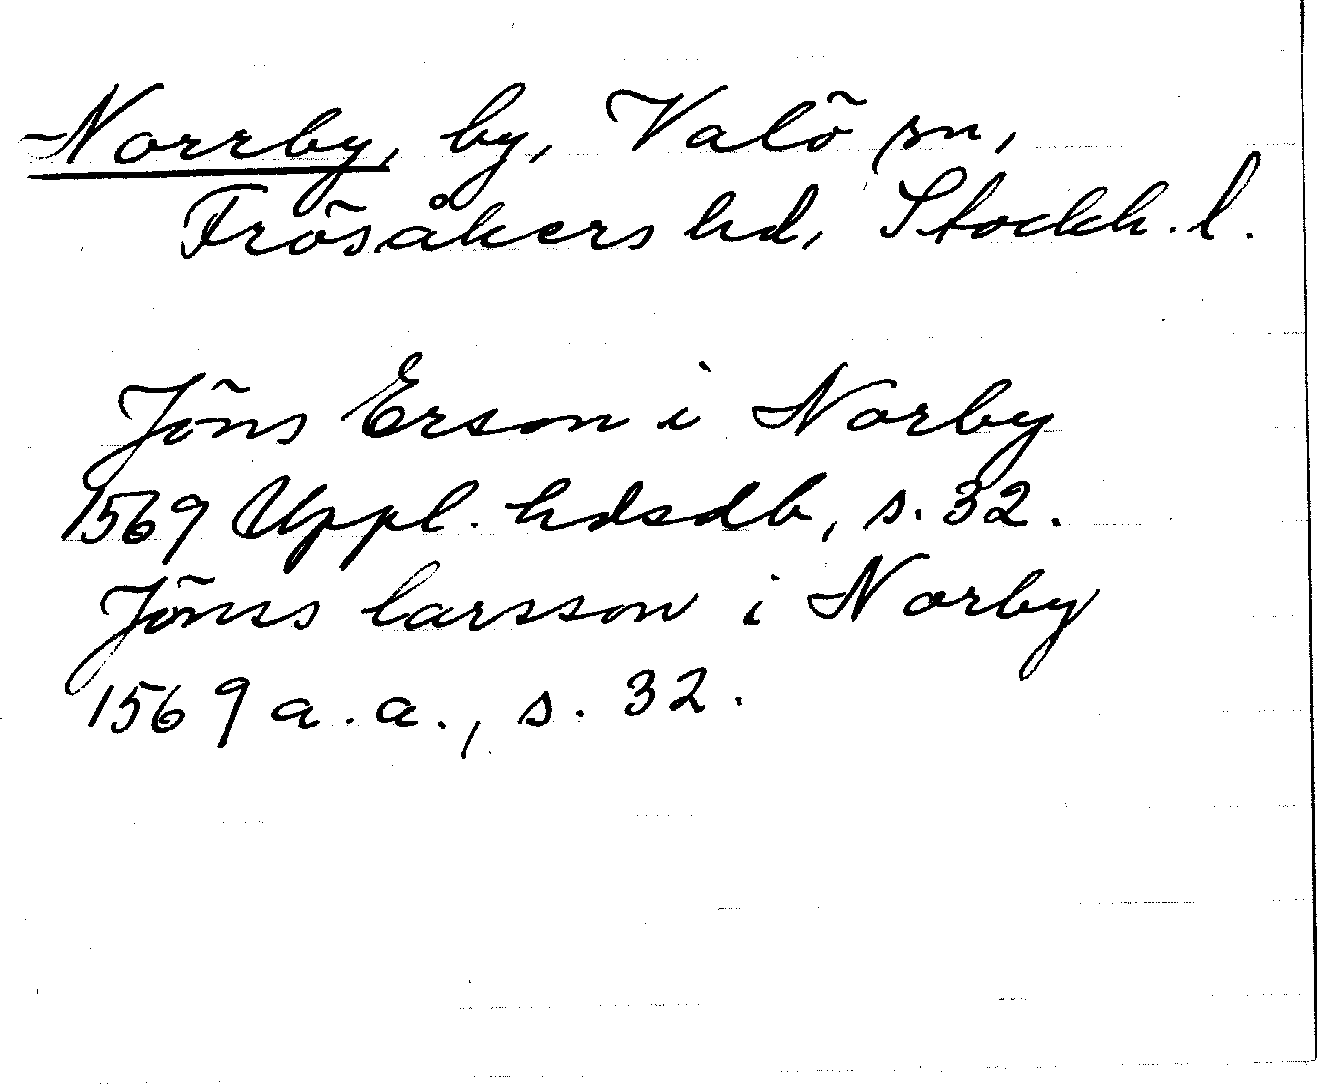 Norrby, by, Valö sn,
Frösåkers hd, Stockh. l.
Jöns Erson i Norby
1569 Uppl. hdsdb, s. 32.
Jönss larsson i Norby
1569 a. a., s. 32.